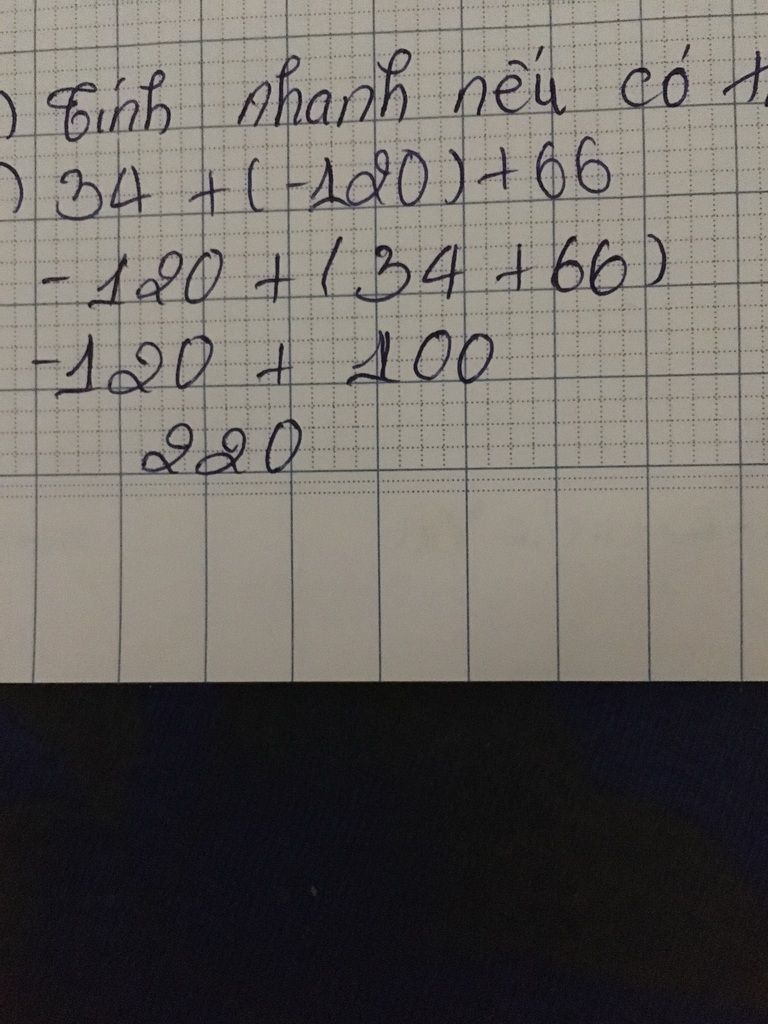 ) Tính nhanh nếu có
) 34 + (-120) + 66
-120 + (34 + 66)
-120 + 100
220